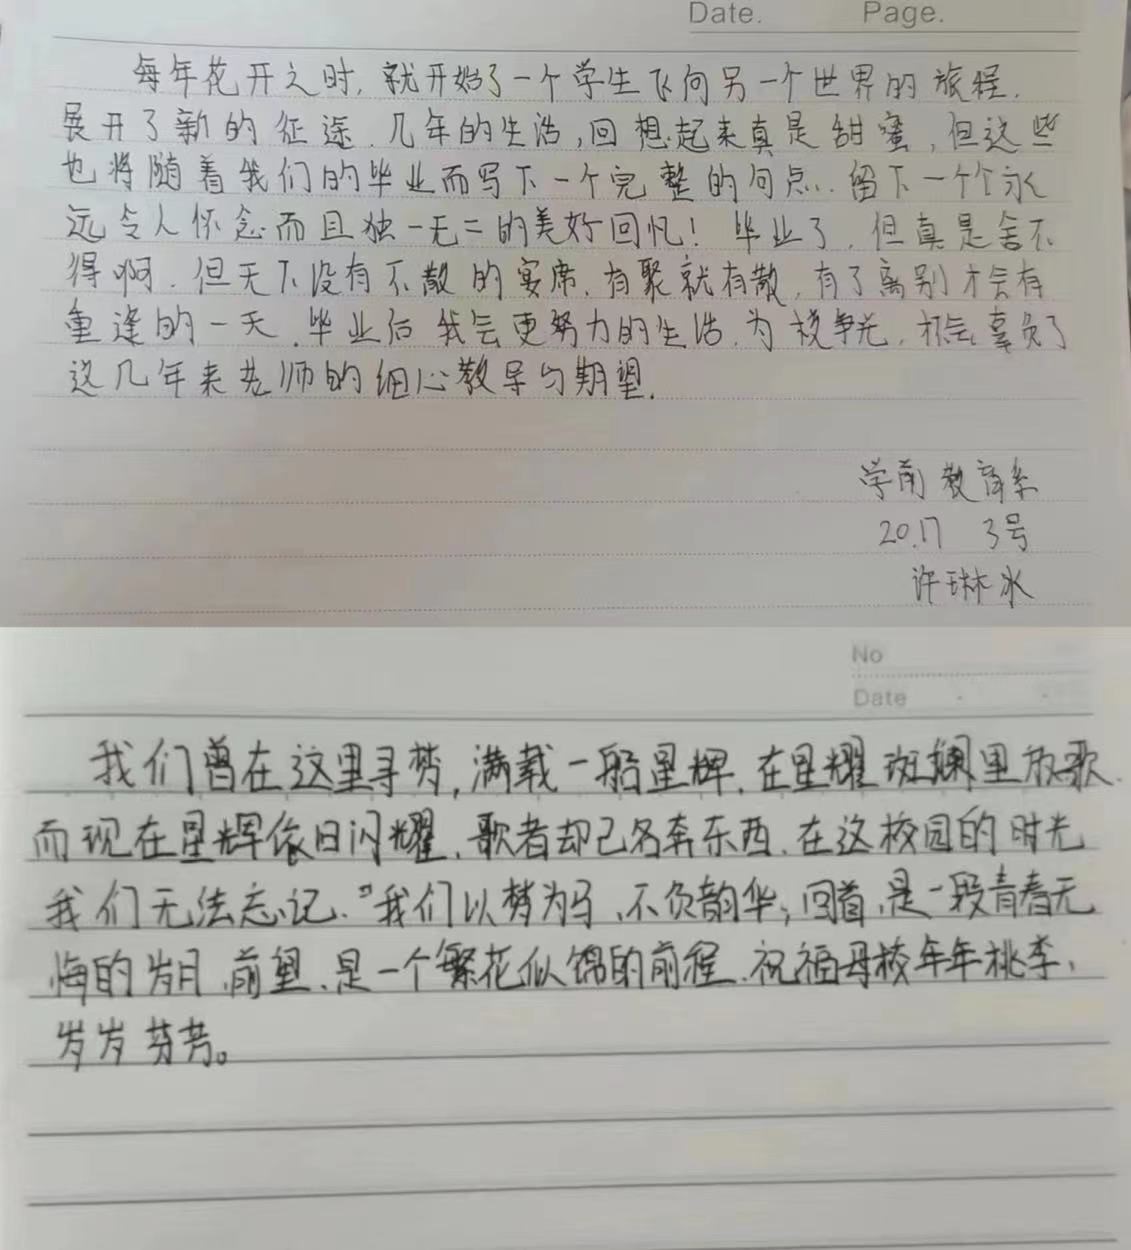 Date. Page.
每年花开之时,就开始了一个学生飞向另一个世界的旅程.
展开了新的征途.几年的生活,回想起来真是甜蜜,但这些
也将随着我们的毕业而写下一个完整的句点.留下一个个永
远令人怀念而且独一无二的美好回忆!毕业了,但真是舍不
得啊.但天下没有不散的宴席.有聚就有散,有了离别才会有
重逢的一天.毕业后我会更努力的生活.为校争光.会辜负了
这几年来老师的细心教导与期望.
学前教育系
20.17 3号
许琳冰
No
Date
我们曾在这里寻梦,满载一船星辉.在星耀斑斓里放歌.
而现在星辉依旧闪耀.歌者却已各奔东西.在这校园的时光
我们无法忘记."我们以梦为马,不负韵华;回首,是一段青春无
悔的岁月.前望、是一个繁花似锦的前程.祝福母校年年桃李,
岁岁芬芳。